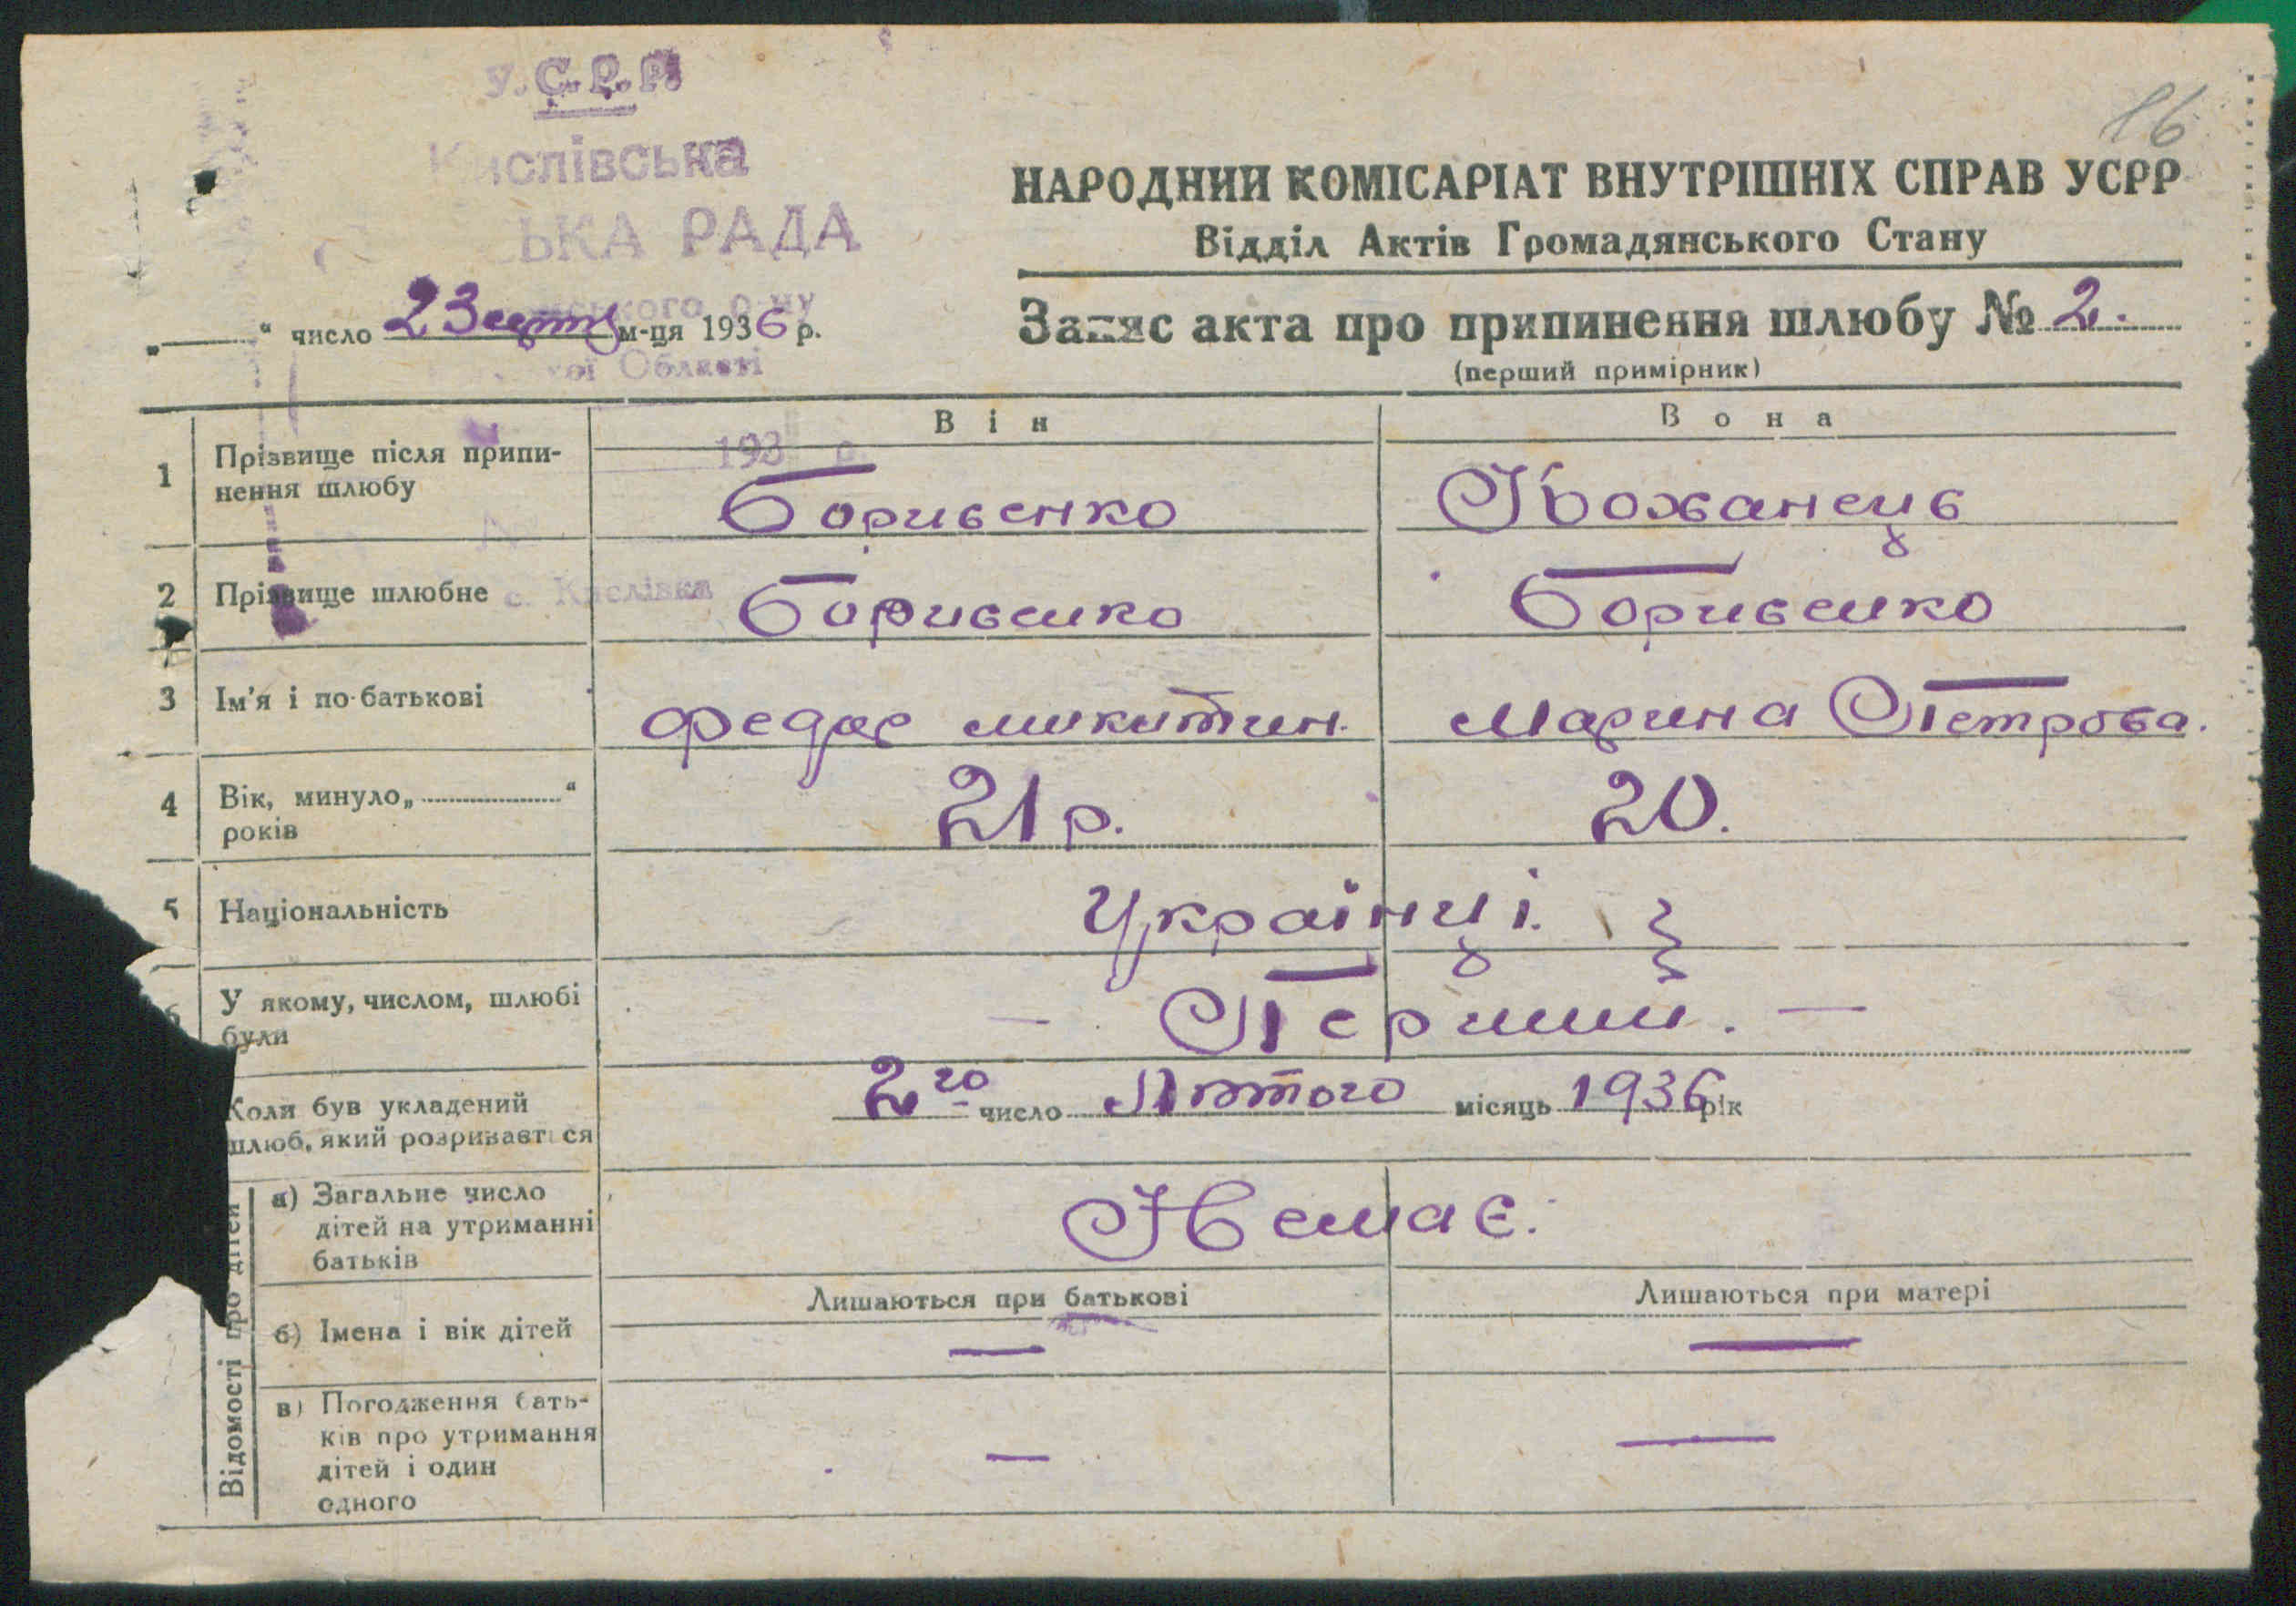 У.С.Р.Р.
Кислівська
ЬКА РАДА
ського р-ну
кої Області
193 р.
с. Кислівка
16
НАРОДНИЙ КОМІСАРІАТ ВНУТРІШНІХ СПРАВ УСРР
Відділ Актів Громадянського Стану
„ “ число 23 м-ця 1936 р.
Запис акта про припинення шлюбу № 2.
(перший примірник)
Він
Вона
1 Прізвище після припи-
нення шлюбу
Боривенко
Кожанець
2 Прізвище шлюбне
Боривенко
Боривенко
3 Ім'я і по-батькові
Федор микитин.
Марина Петрова.
4 Вік, минуло „ “
років
21 р.
20.
5 Національність
Українці.
6 У якому, числом, шлюбі
були
— Перший. —
Коли був укладений
шлюб, який розривається
2го число Лютого місяць 1936 рік
Відомості про дітей
а) Загальне число
дітей на утриманні
батьків
Немає.
Лишаються при батькові
Лишаються при матері
б) Імена і вік дітей
—
—
в) Погодження бать-
ків про утримання
дітей і один
одного
—
—